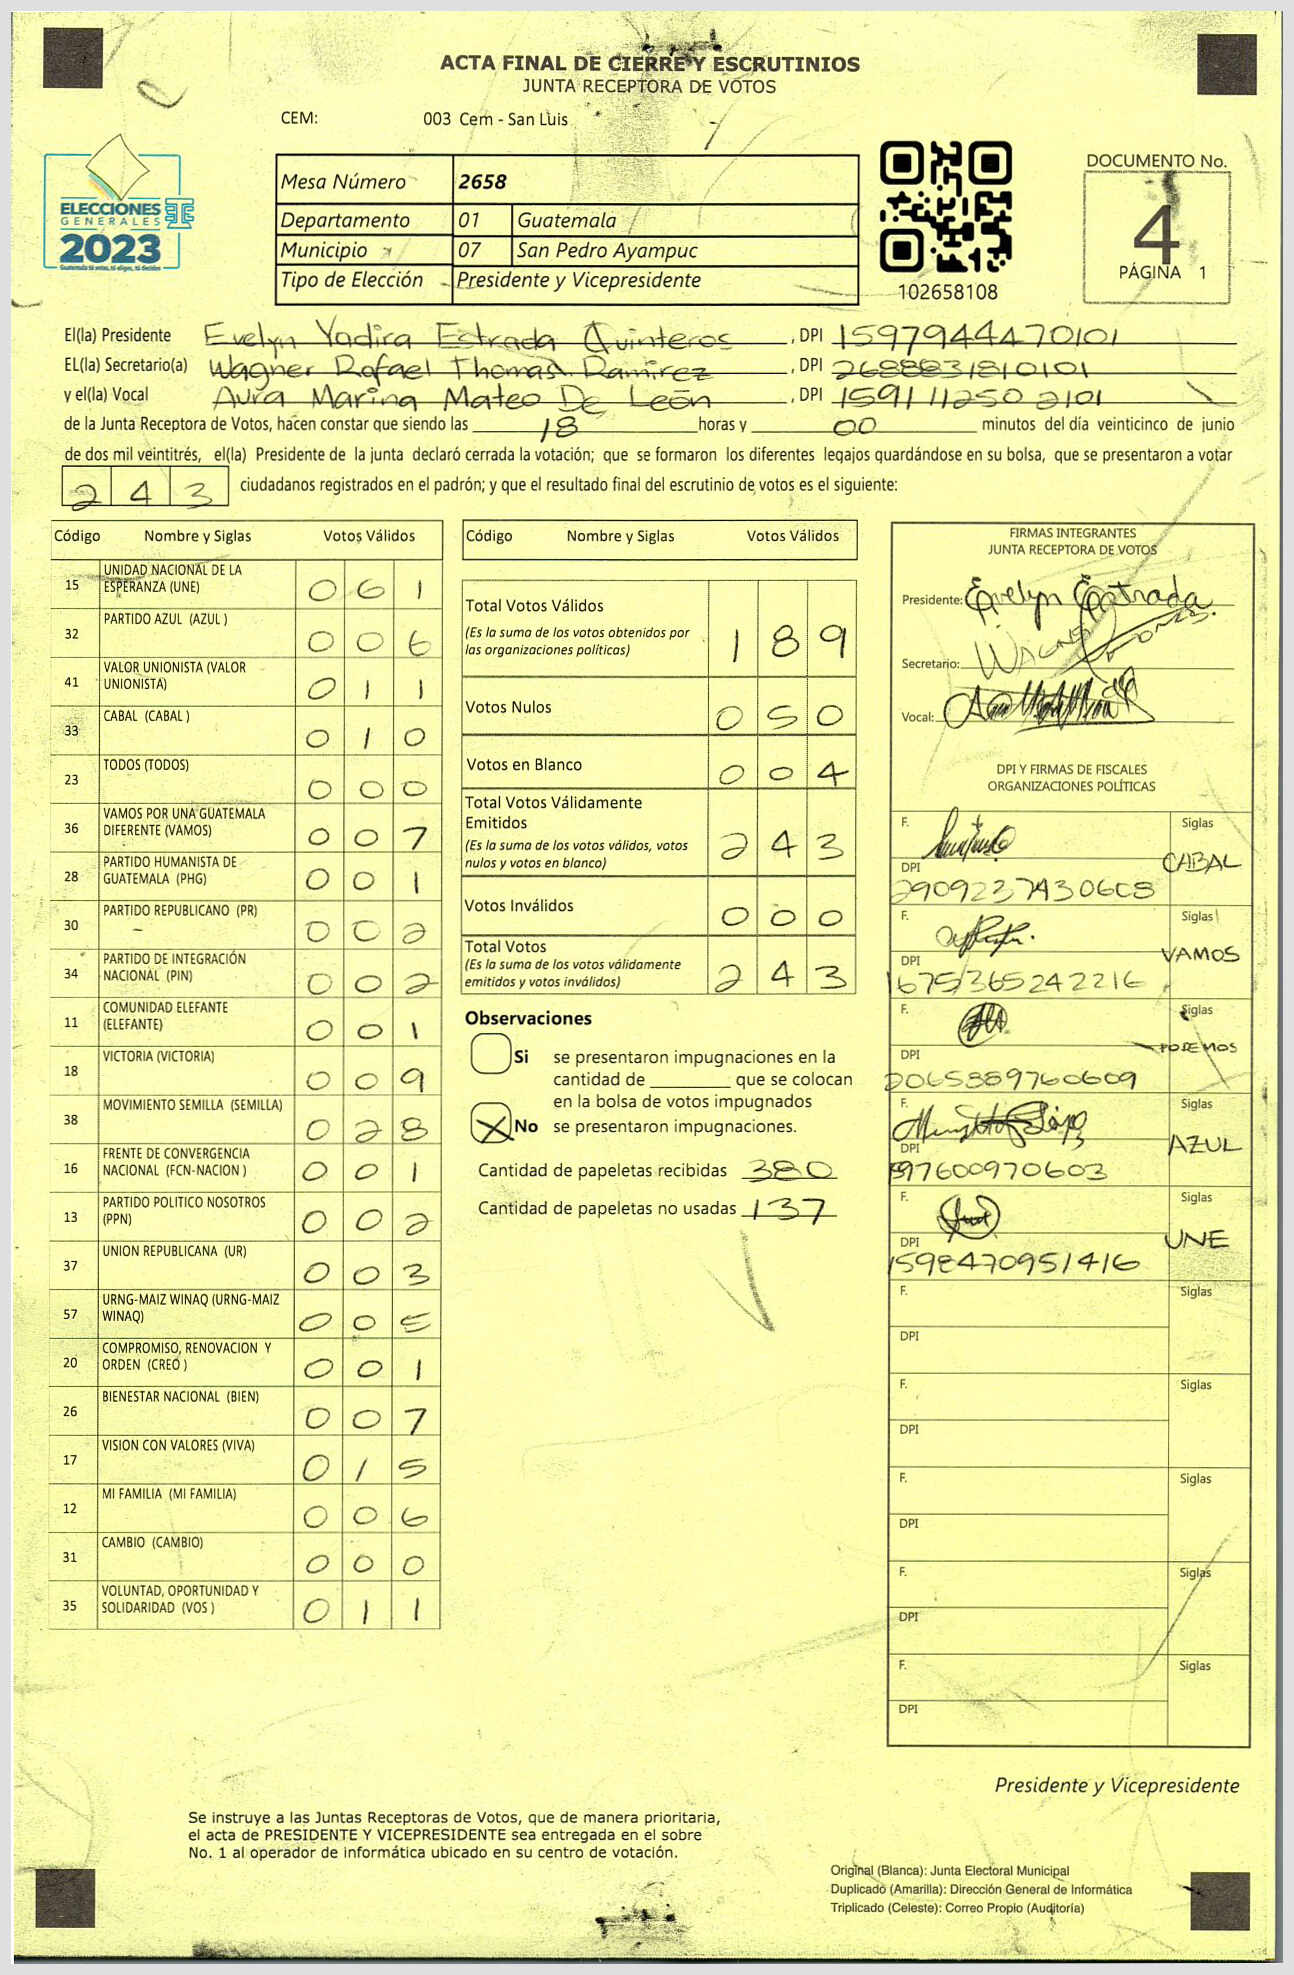 ACTA FINAL DE CIERRE Y ESCRUTINIOS
JUNTA RECEPTORA DE VOTOS
CEM: 003 Cem - San Luis
ELECCIONES
GENERALES
2023
Guatemala tú votas, tú eliges, tú decides
Mesa Número 2658
Departamento 01 Guatemala
Municipio 07 San Pedro Ayampuc
Tipo de Elección Presidente y Vicepresidente
102658108
DOCUMENTO No.
4
PÁGINA 1
El(la) Presidente Evelyn Yadira Estrada Quinteros , DPI 1597944470101
EL(la) Secretario(a) Wagner Rafael Thomas Ramirez , DPI 2688831810101
y el(la) Vocal Aura Marina Mateo De León , DPI 1591112502101
de la Junta Receptora de Votos, hacen constar que siendo las 18 horas y 00 minutos del día veinticinco de junio
de dos mil veintitrés, el(la) Presidente de la junta declaró cerrada la votación; que se formaron los diferentes legajos quardándose en su bolsa, que se presentaron a votar
243 ciudadanos registrados en el padrón; y que el resultado final del escrutinio de votos es el siguiente:
Código Nombre y Siglas Votos Válidos
15 UNIDAD NACIONAL DE LA ESPERANZA (UNE) 0 6 1
32 PARTIDO AZUL (AZUL ) 0 0 6
41 VALOR UNIONISTA (VALOR UNIONISTA) 0 1 1
33 CABAL (CABAL ) 0 1 0
23 TODOS (TODOS) 0 0 0
36 VAMOS POR UNA GUATEMALA DIFERENTE (VAMOS) 0 0 7
28 PARTIDO HUMANISTA DE GUATEMALA (PHG) 0 0 1
30 PARTIDO REPUBLICANO (PR) 0 0 2
34 PARTIDO DE INTEGRACIÓN NACIONAL (PIN) 0 0 2
11 COMUNIDAD ELEFANTE (ELEFANTE) 0 0 1
18 VICTORIA (VICTORIA) 0 0 9
38 MOVIMIENTO SEMILLA (SEMILLA) 0 2 8
16 FRENTE DE CONVERGENCIA NACIONAL (FCN-NACION ) 0 0 1
13 PARTIDO POLITICO NOSOTROS (PPN) 0 0 2
37 UNION REPUBLICANA (UR) 0 0 3
57 URNG-MAIZ WINAQ (URNG-MAIZ WINAQ) 0 0 5
20 COMPROMISO, RENOVACION Y ORDEN (CREO ) 0 0 1
26 BIENESTAR NACIONAL (BIEN) 0 0 7
17 VISION CON VALORES (VIVA) 0 1 5
12 MI FAMILIA (MI FAMILIA) 0 0 6
31 CAMBIO (CAMBIO) 0 0 0
35 VOLUNTAD, OPORTUNIDAD Y SOLIDARIDAD (VOS ) 0 1 1
Código Nombre y Siglas Votos Válidos
Total Votos Válidos
(Es la suma de los votos obtenidos por
las organizaciones políticas) 1 8 9
Votos Nulos 0 5 0
Votos en Blanco 0 0 4
Total Votos Válidamente
Emitidos
(Es la suma de los votos válidos, votos
nulos y votos en blanco) 2 4 3
Votos Inválidos 0 0 0
Total Votos
(Es la suma de los votos válidamente
emitidos y votos inválidos) 2 4 3
Observaciones
Si se presentaron impugnaciones en la
cantidad de ________ que se colocan
en la bolsa de votos impugnados
No se presentaron impugnaciones.
Cantidad de papeletas recibidas 380
Cantidad de papeletas no usadas 137
FIRMAS INTEGRANTES
JUNTA RECEPTORA DE VOTOS
Presidente: Evelyn Estrada
Secretario:
Vocal:
DPI Y FIRMAS DE FISCALES
ORGANIZACIONES POLÍTICAS
F. Siglas
CABAL
DPI
2909237430608
F. Siglas
VAMOS
DPI
1675365242216
F. Siglas
PODEMOS
DPI
2065889760609
F. Siglas
AZUL
DPI
F. Siglas
UNE
DPI
1598470951416
F. Siglas
DPI
F. Siglas
DPI
F. Siglas
DPI
F. Siglas
DPI
F. Siglas
DPI
Presidente y Vicepresidente
Se instruye a las Juntas Receptoras de Votos, que de manera prioritaria,
el acta de PRESIDENTE Y VICEPRESIDENTE sea entregada en el sobre
No. 1 al operador de informática ubicado en su centro de votación.
Original (Blanca): Junta Electoral Municipal
Duplicado (Amarilla): Dirección General de Informática
Triplicado (Celeste): Correo Propio (Auditoría)